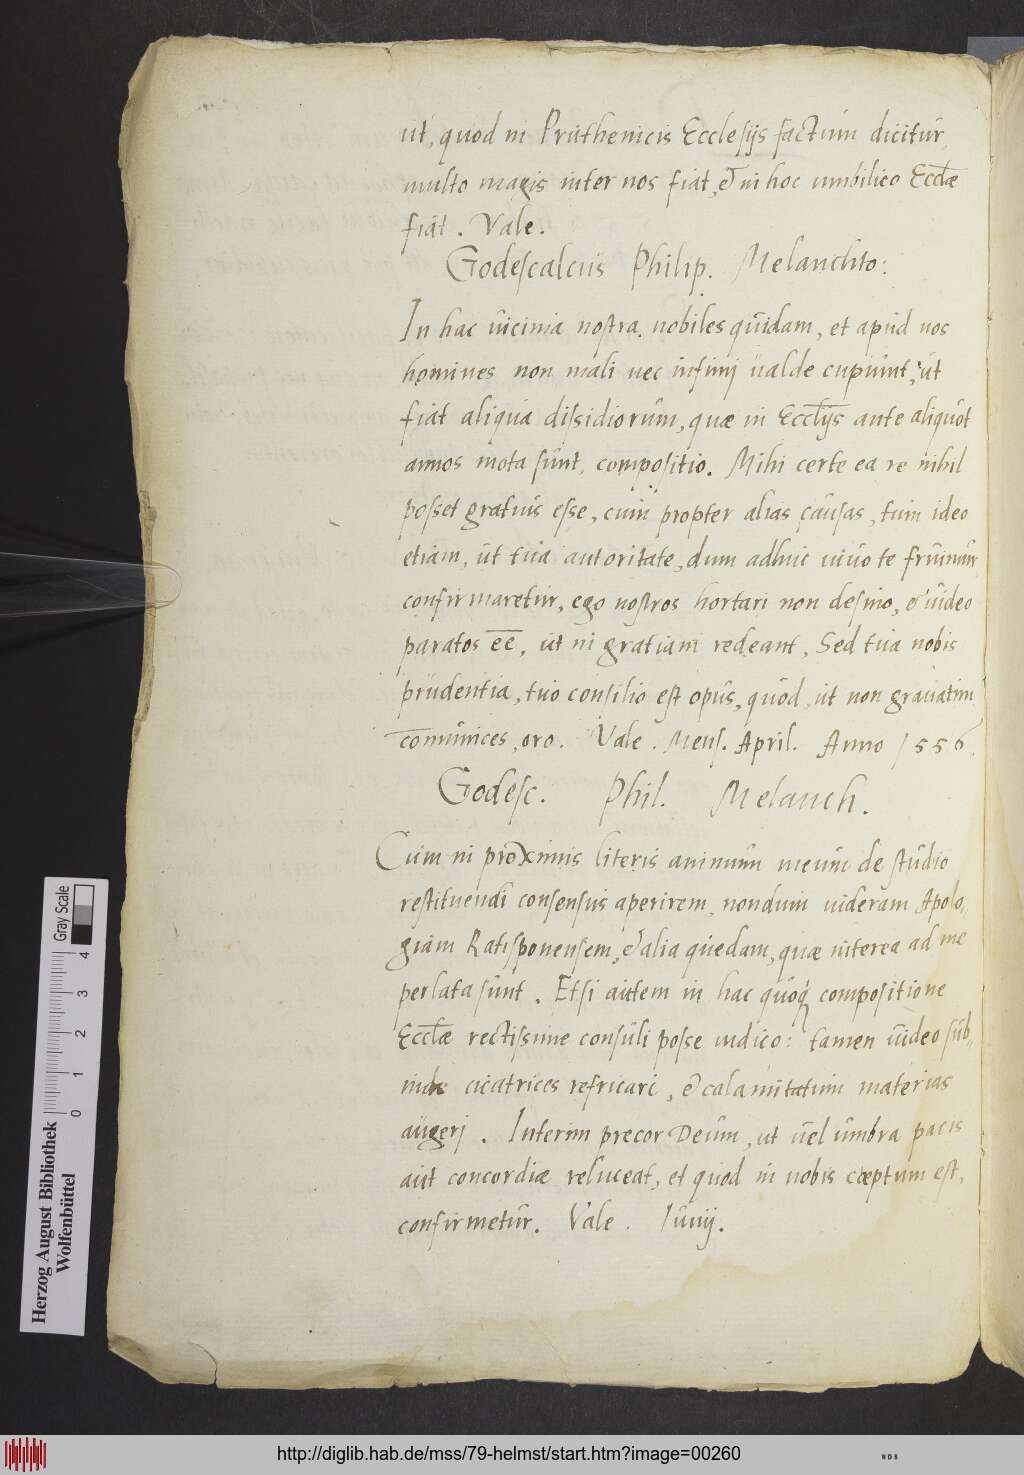 ut, quod in Pruthenicis Ecclesijs factum dicitur,
multo magis inter nos fiat, & in hoc umbilico Eccłæ
fiat. Vale.
Godescalcus Philip. Melanchto:
In hac uicinia nostra, nobiles quidam, et apud nos
homines non mali nec infimi ualde cupiunt, ut
fiat aliqua dissidiorum, quæ in Eccłijs ante aliquot
annos mota sunt, compositio. Mihi certe ea re nihil
posset gratius esse, cum propter alias causas, tum ideo
etiam, ut tua autoritate, dum adhuc uiuo te fruimur
confirmaretur, ego nostros hortari non desino, & uideo
paratos ee̅, ut in gratiam redeant, Sed tua nobis
prudentia, tuo consilio est opus, quod, ut non grauatim
communices, oro. Vale. Mens. April. Anno 1556.
Godesc. Phil. Melanch.
Cum in proximis literis animum meum de studio
restituendi consensus aperirem, nondum uideram Apolo-
giam Ratisponensem, & alia quedam, quæ interea ad me
perlata sunt. Etsi autem in hac quoq; compositione
Eccłæ rectissime consuli posse iudico: tamen uideo sub-
inde cicatrices refricari, & calamitatum materias
augeri. Interim precor Deum, ut uel umbra pacis
aut concordiæ reluceat, et quod in nobis cœptum est,
confirmetur. Vale. Iunij.
Herzog August Bibliothek
Wolfenbüttel
0 1 2 3 4
Gray Scale
http://diglib.hab.de/mss/79-helmst/start.htm?image=00260
WDB